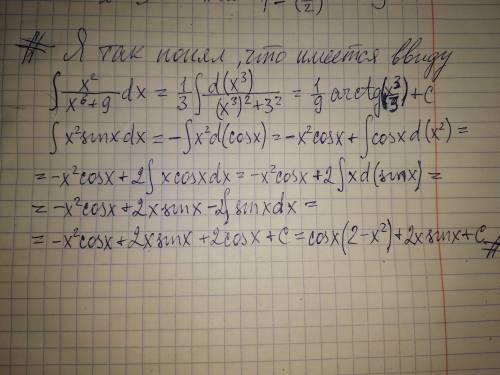 # Я так понял, что имеется ввиду
∫ x²/(x⁶+9) dx = 1/3 ∫ d(x³)/((x³)²+3²) = 1/9 arctg(x³/3) + C
∫ x² sinx dx = -∫ x² d(cosx) = -x² cosx + ∫ cosx d(x²) =
= -x² cosx + 2∫ x cosx dx = -x² cosx + 2∫ x d(sinx) =
= -x² cosx + 2x sinx - 2∫ sinx dx =
= -x² cosx + 2x sinx + 2cosx + C = cosx(2-x²) + 2x sinx + C #